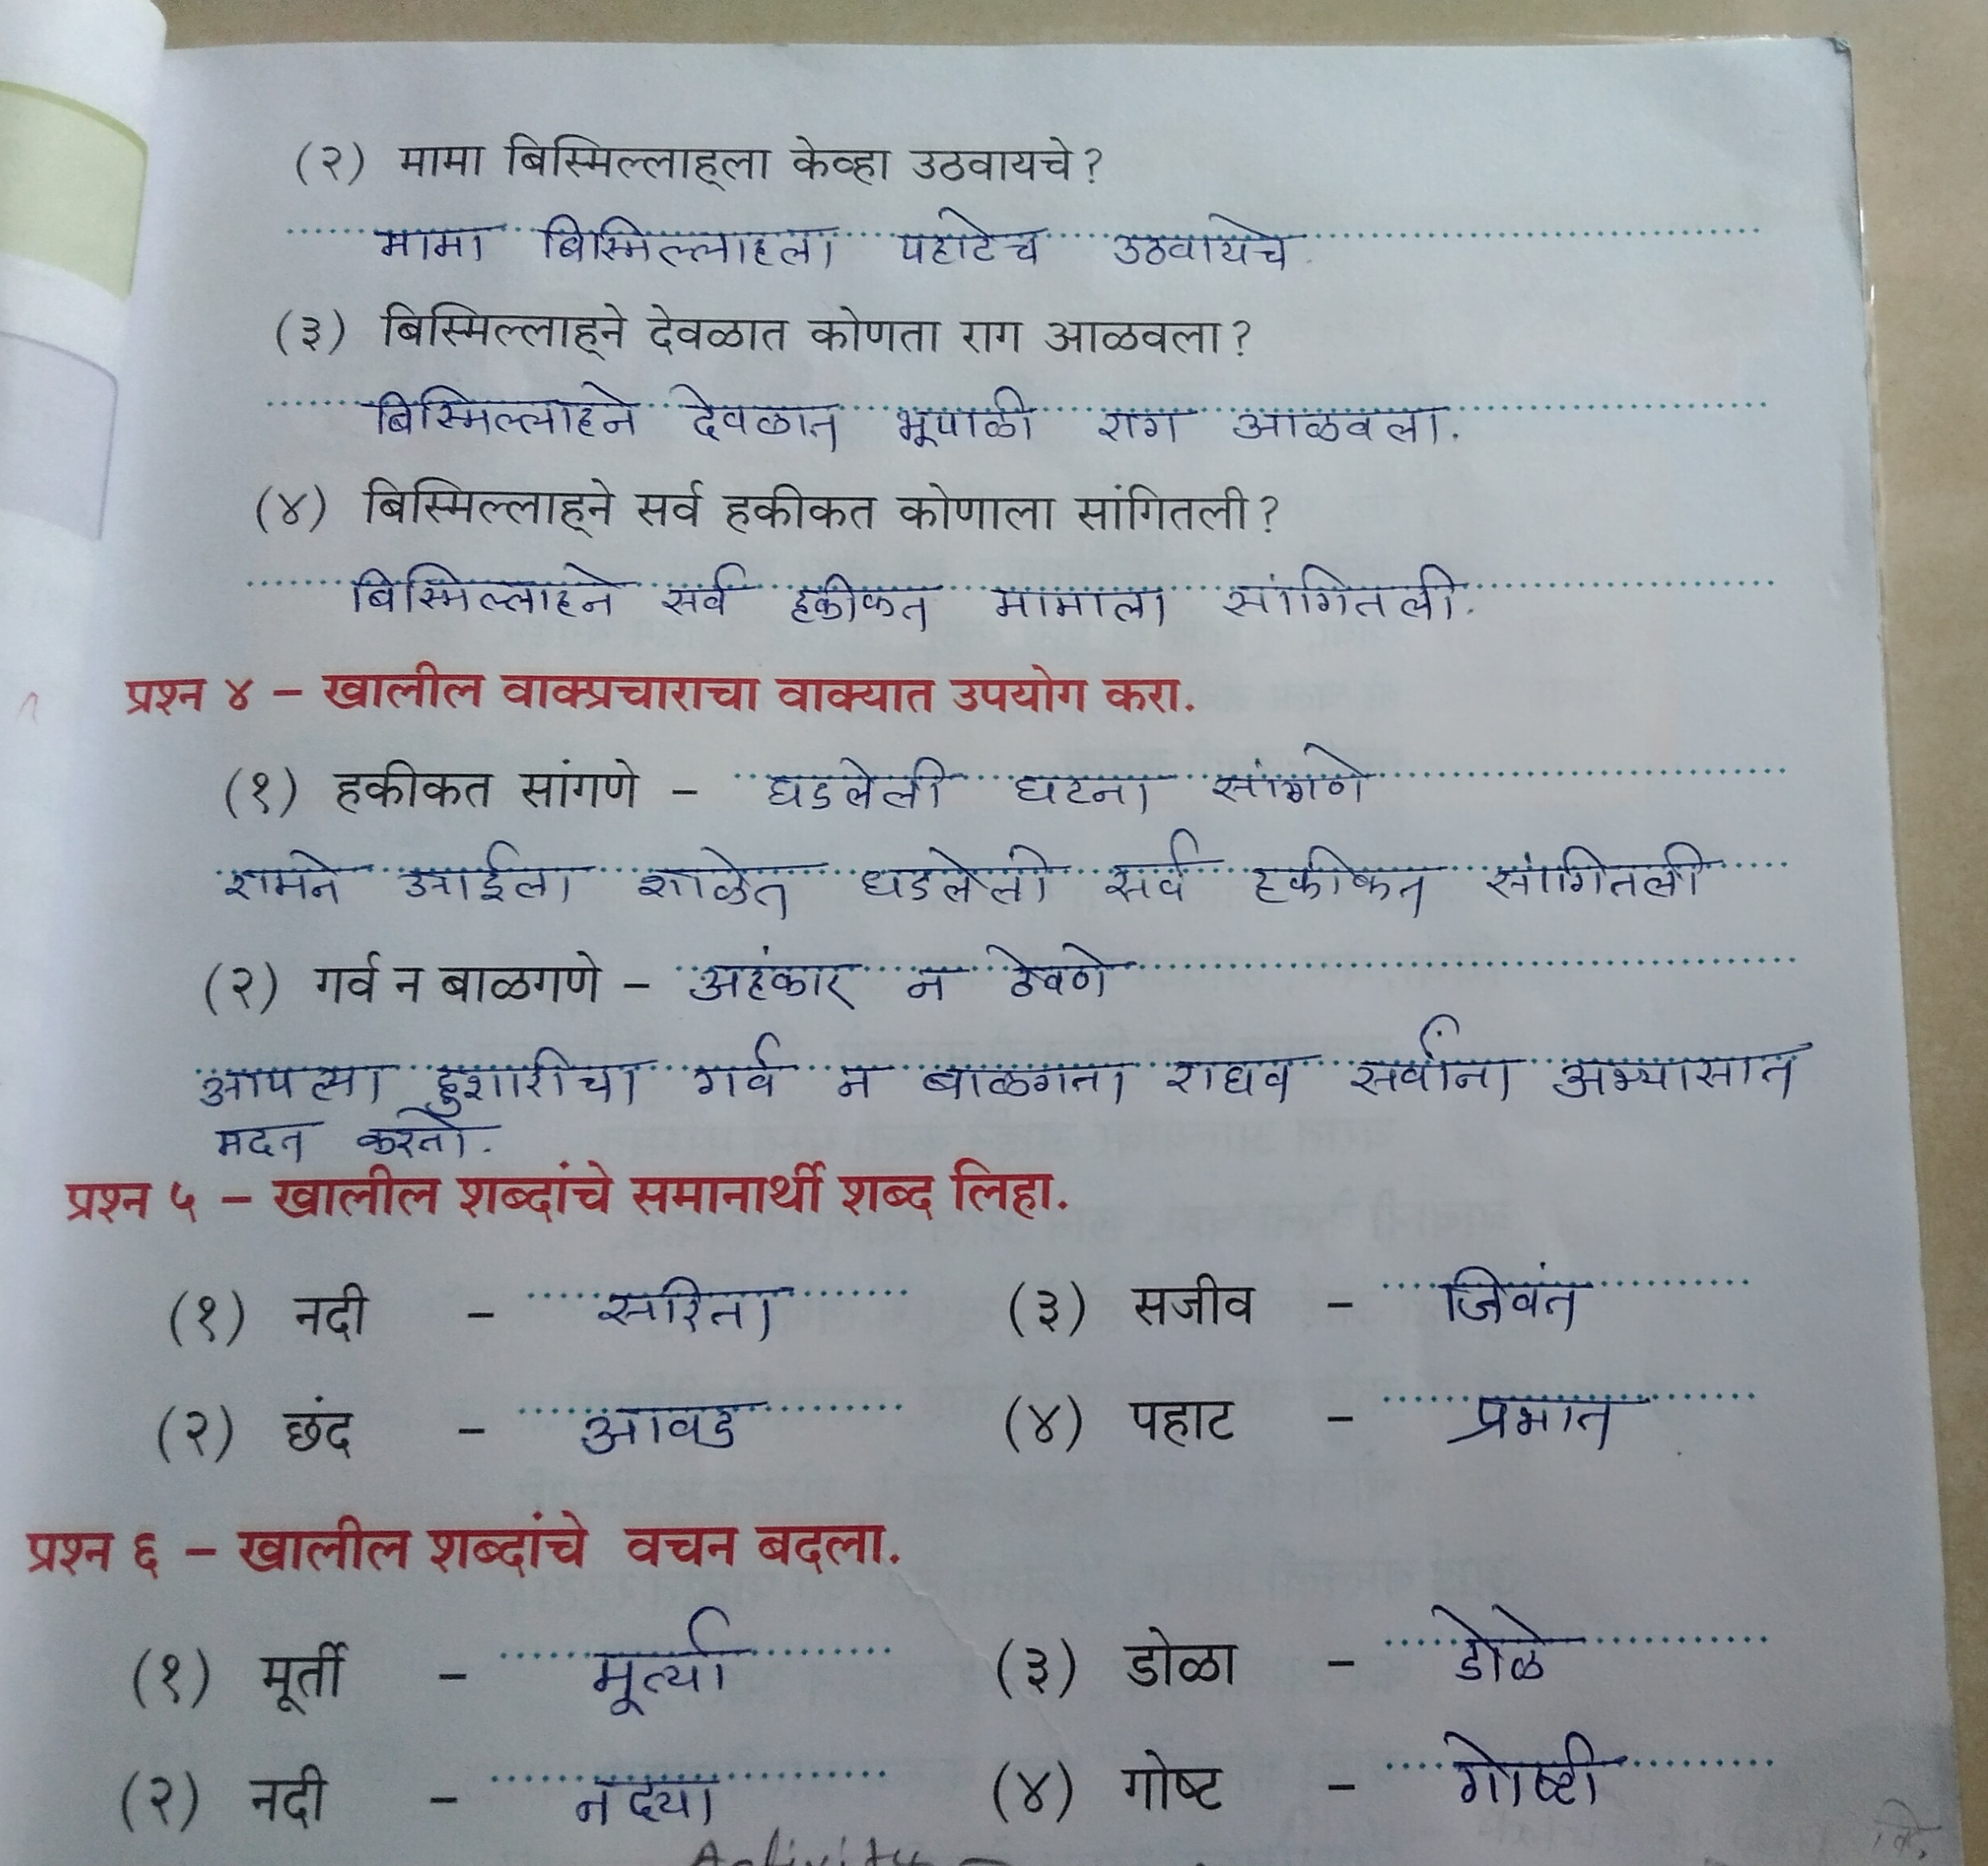 (२) मामा बिस्मिल्लाह्ला केव्हा उठवायचे?
मामा बिस्मिल्लाहला पहाटेच उठवायचे.
(३) बिस्मिल्लाह्ने देवळात कोणता राग आळवला?
बिस्मिल्लाहने देवळात भूपाळी राग आळवला.
(४) बिस्मिल्लाह्ने सर्व हकीकत कोणाला सांगितली?
बिस्मिल्लाहने सर्व हकीकत मामाला सांगितली.
प्रश्न ४ – खालील वाक्प्रचाराचा वाक्यात उपयोग करा.
(१) हकीकत सांगणे – घडलेली घटना सांगणे
रामने आईला शाळेत घडलेली सर्व हकीकत सांगितली
(२) गर्व न बाळगणे – अहंकार न ठेवणे
आपल्या हुशारीचा गर्व न बाळगता राघव सर्वांना अभ्यासात
मदत करतो.
प्रश्न ५ – खालील शब्दांचे समानार्थी शब्द लिहा.
(१) नदी – सरिता (३) सजीव – जिवंत
(२) छंद – आवड (४) पहाट – प्रभात
प्रश्न ६ – खालील शब्दांचे वचन बदला.
(१) मूर्ती – मूर्त्या (३) डोळा – डोळे
(२) नदी – नदया (४) गोष्ट – गोष्टी
Activity –